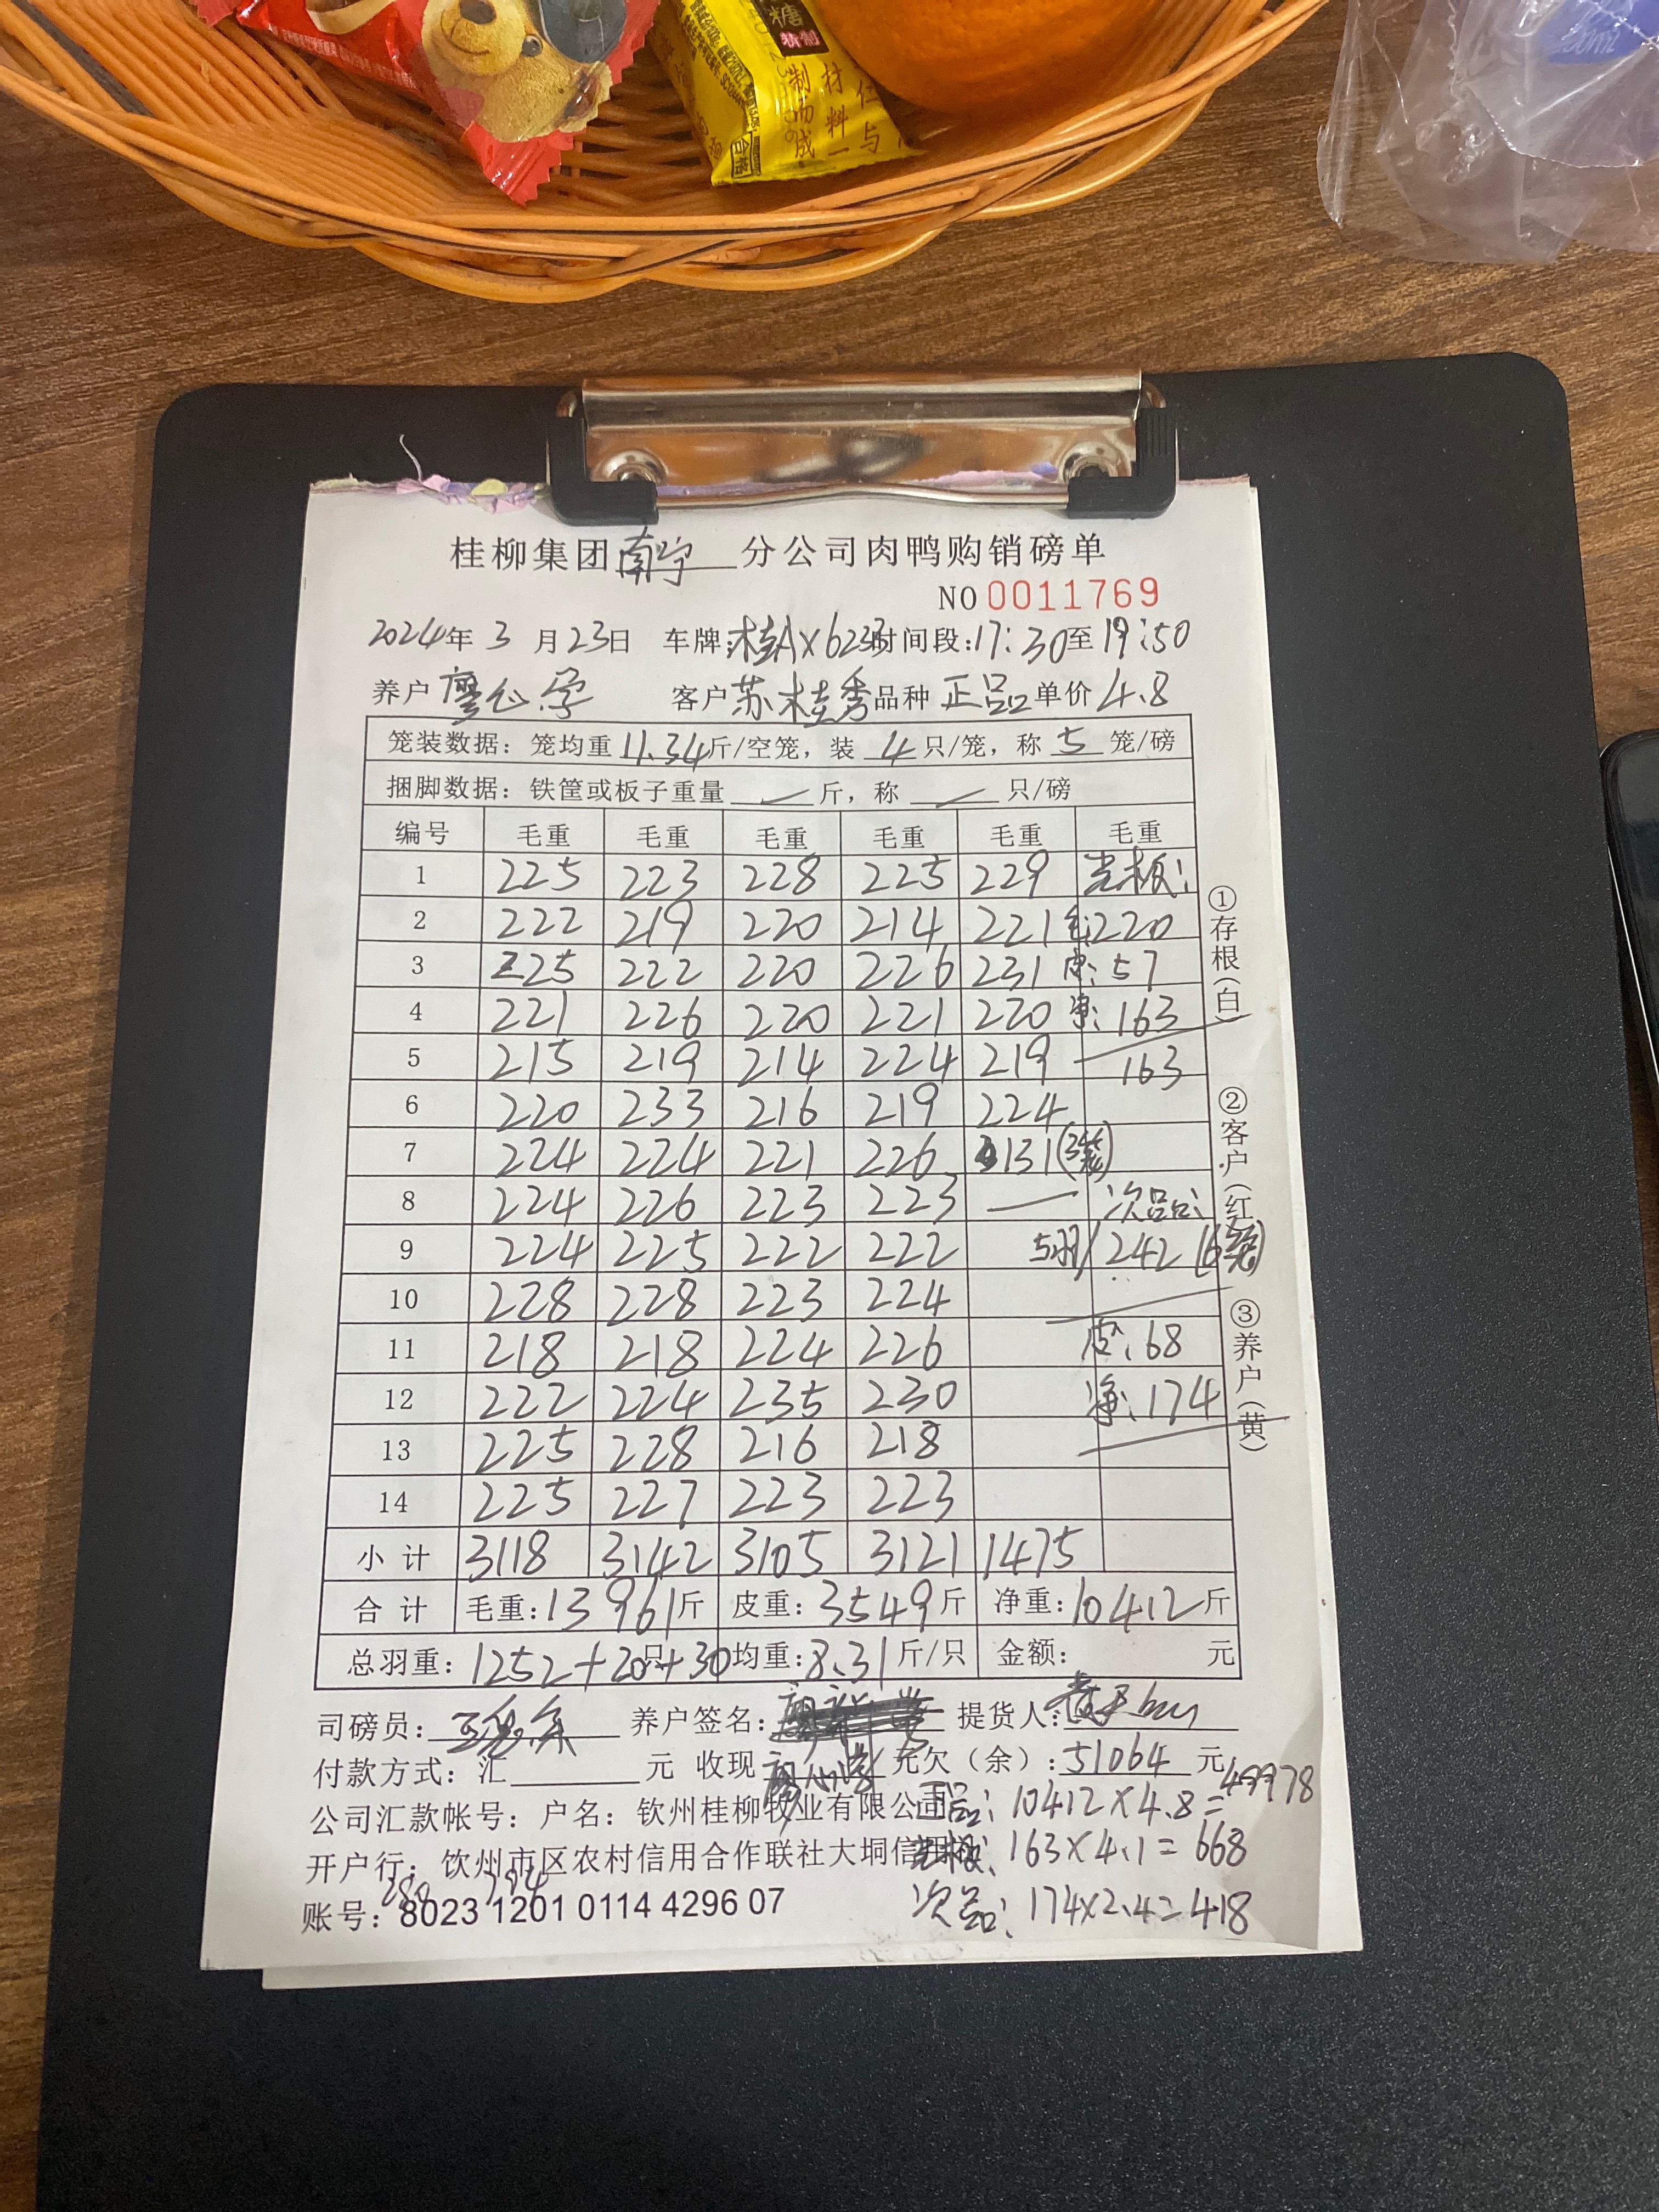 糖
精制
制而成
材料一
位与
合格
桂柳集团南宁分公司肉鸭购销磅单
NO 0011769
2024年 3 月 23日 车牌:桂AX6233时间段:17:30至19:50
养户 客户苏桂秀品种 正品 单价 4.8
笼装数据: 笼均重 11.34斤/空笼, 装 4 只/笼, 称 5 笼/磅
捆脚数据: 铁筐或板子重量 斤, 称 只/磅
编号 毛重 毛重 毛重 毛重 毛重 毛重
1 225 223 228 225 229 光板:
2 222 219 220 214 221 毛:220
3 225 222 220 226 231 皮:57
4 221 226 220 221 220 净:163
5 215 219 214 224 219 163
6 220 233 216 219 224
7 224 224 221 226 131(3笼)
8 224 226 223 223 — 次品:
9 224 225 222 222 5羽/242(6笼)
10 228 228 223 224
11 218 218 224 226 皮:68
12 222 224 235 230 净:174
13 225 228 216 218
14 225 227 223 223
小计 3118 3142 3105 3121 1475
合计 毛重:13961斤 皮重:3549斤 净重:10412斤
总羽重:1252+20只+30 均重:8.31斤/只 金额: 元
司磅员: 养户签名: 提货人:
付款方式: 汇 元 收现 元欠(余):51064 元
公司汇款帐号: 户名: 钦州桂柳牧业有限公司
正品:10412×4.8=49978
开户行: 钦州市区农村信用合作联社大垌信用社
光板:163×4.1=668
账号: 8023 1201 0114 4296 07
次品:174×2.4=418
①存根(白)
②客户(红)
③养户(黄)